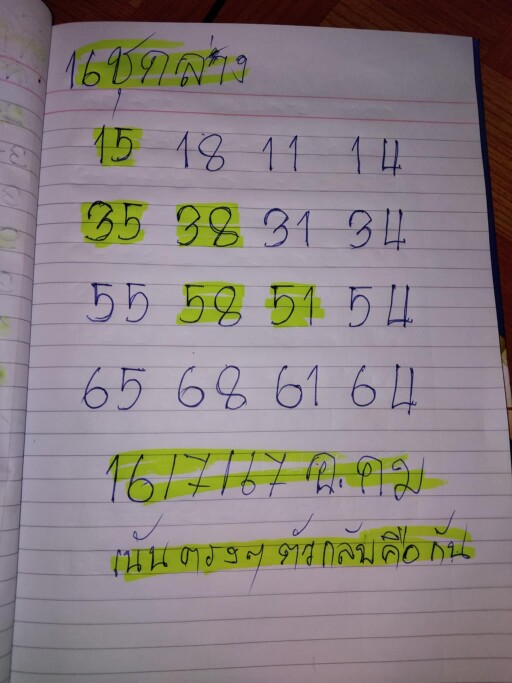 16ชุดล่าง
15 18 11 14
35 38 31 34
55 58 51 54
65 68 61 64
16/7/67 ฉ.คม
เน้นตรงๆ ตัวกลับคือกัน